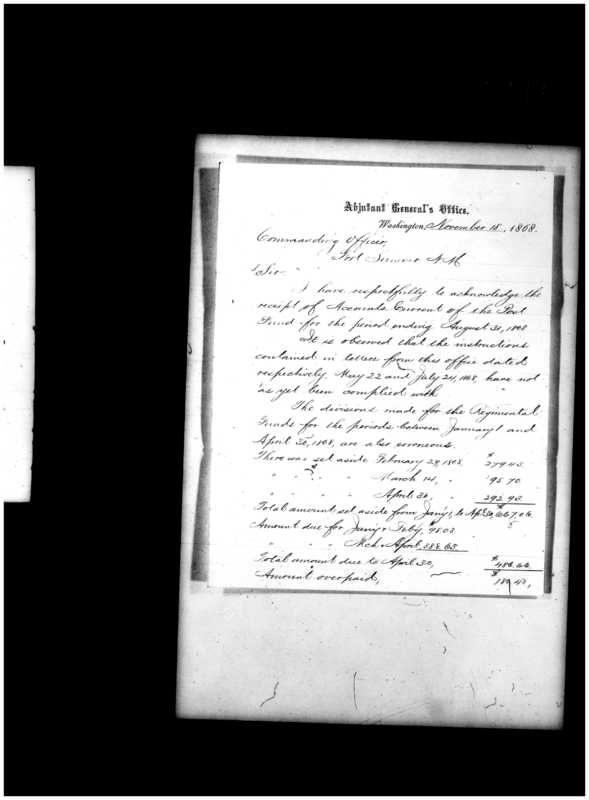 Adjutant General's Office,
Washington, November 18, 1868.
Commanding Officer,
Fort Sumner N.M.
Sir
I have respectfully to acknowledge the
receipt of Accounts Current of the Post
Fund for the period ending August 31, 1868
It is observed that the instructions
contained in letters from this office dated
respectively, May 22 and July 24, 1868, have not
as yet been complied with
The divisions made for the Regimental
Funds for the periods between January 1 and
April 30, 1868, are also erroneous.
There was set aside February 29, 1868. $279.43.
" " " " March 14, " 95.70
" " " " April 30, " 292.93.
Total amount set aside from Jany 1, to Apl 30, $667.06
Amount due for Jany & Feby, $98.03
" " " Mch & April, 388.63.
Total amount due to April 30, $486.66
Amount overpaid, $180.40,